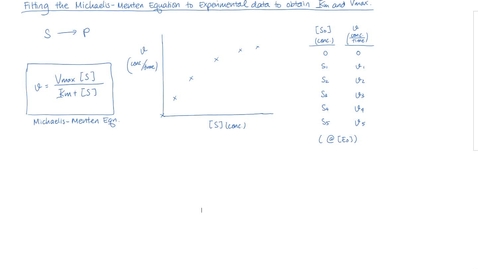 Fitting the Michaelis-Menten Equation to Experimental data to obtain Km and Vmax.
S → P
v = Vmax [S] / Km + [S]
Michaelis-Menten Eqn.
v
(conc/time)
[S] (conc)
[S₀] v
(conc) (conc/time)
0 0
S₁ v₁
S₂ v₂
S₃ v₃
S₄ v₄
S₅ v₅
( @ [E₀])